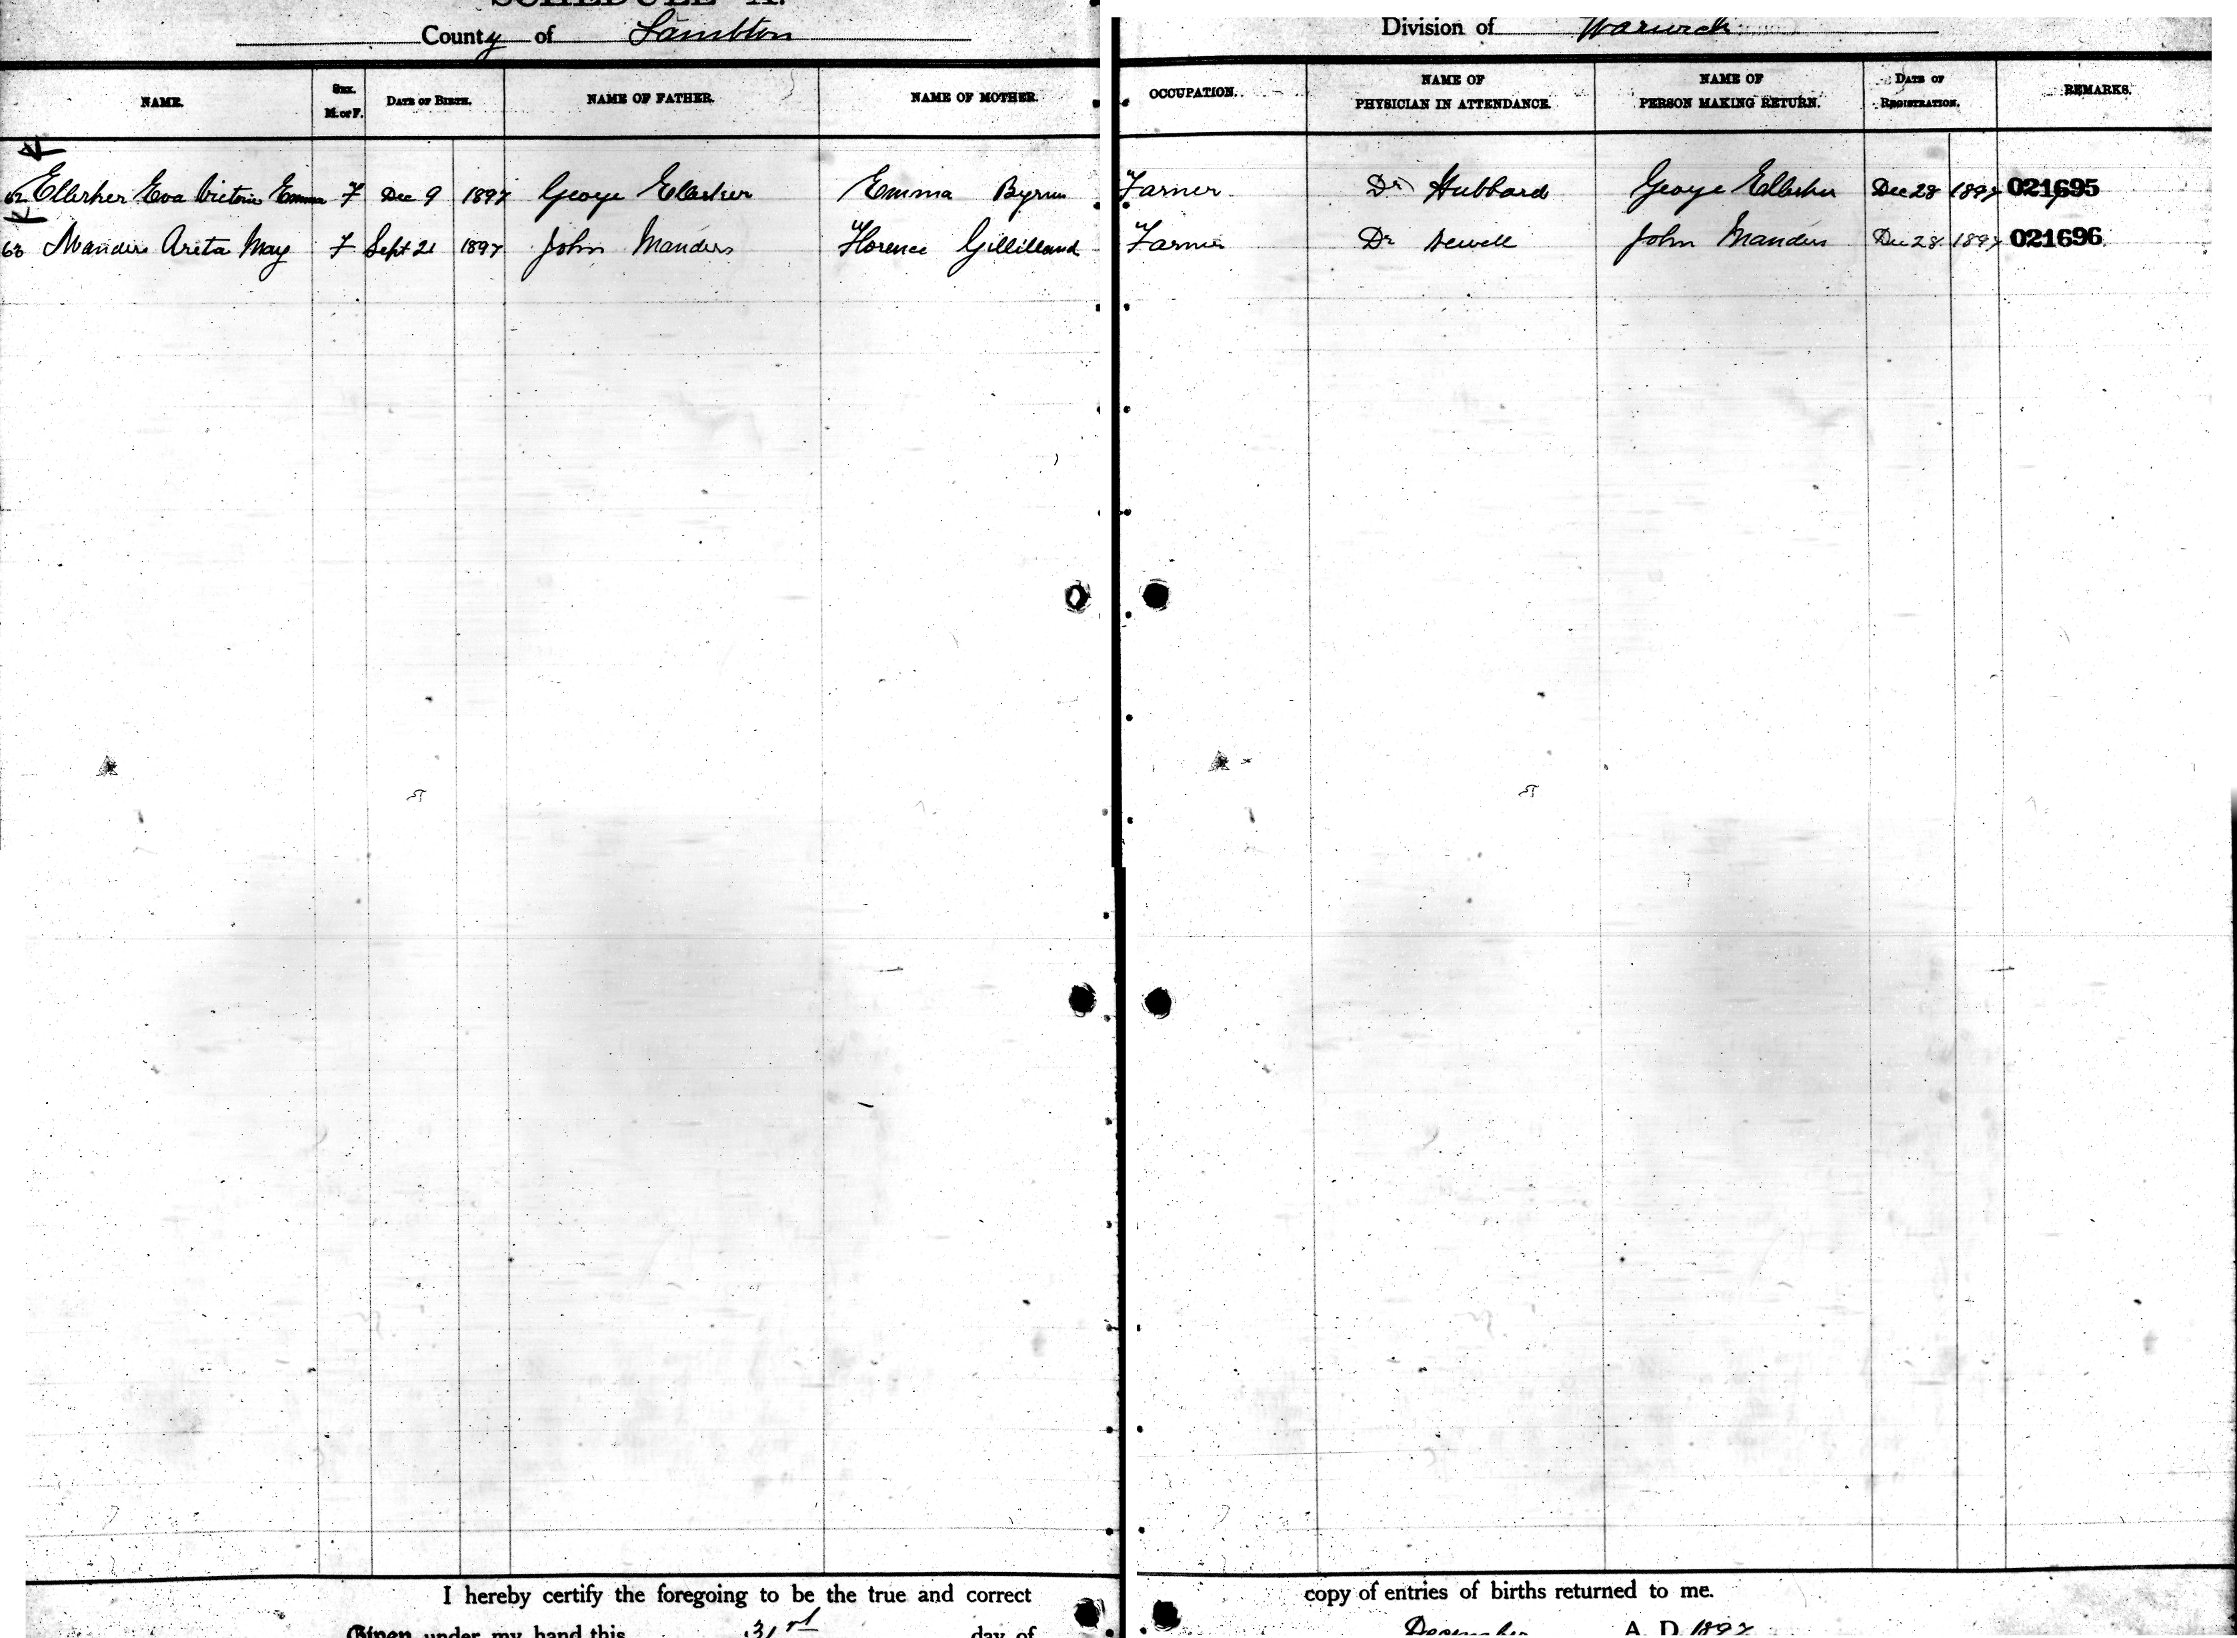 SCHEDULE A.
County of Lambton Division of Warwick
NAME. SEX. M. or F. DATE OF BIRTH. NAME OF FATHER. NAME OF MOTHER. OCCUPATION. NAME OF PHYSICIAN IN ATTENDANCE. NAME OF PERSON MAKING RETURN. DATE OF REGISTRATION. REMARKS.
62 Ellerker Eva Victoria Emma F Dec 9 1897 George Ellerker Emma Byrns Farmer Dr Hubbard George Ellerker Dec 28 1897 021695
63 Manders Areta May F Sept 21 1897 John Manders Florence Gillilland Farmer Dr Newell John Manders Dec 28 1897 021696
I hereby certify the foregoing to be the true and correct copy of entries of births returned to me.
Given under my hand this 31st day of December A. D. 1897